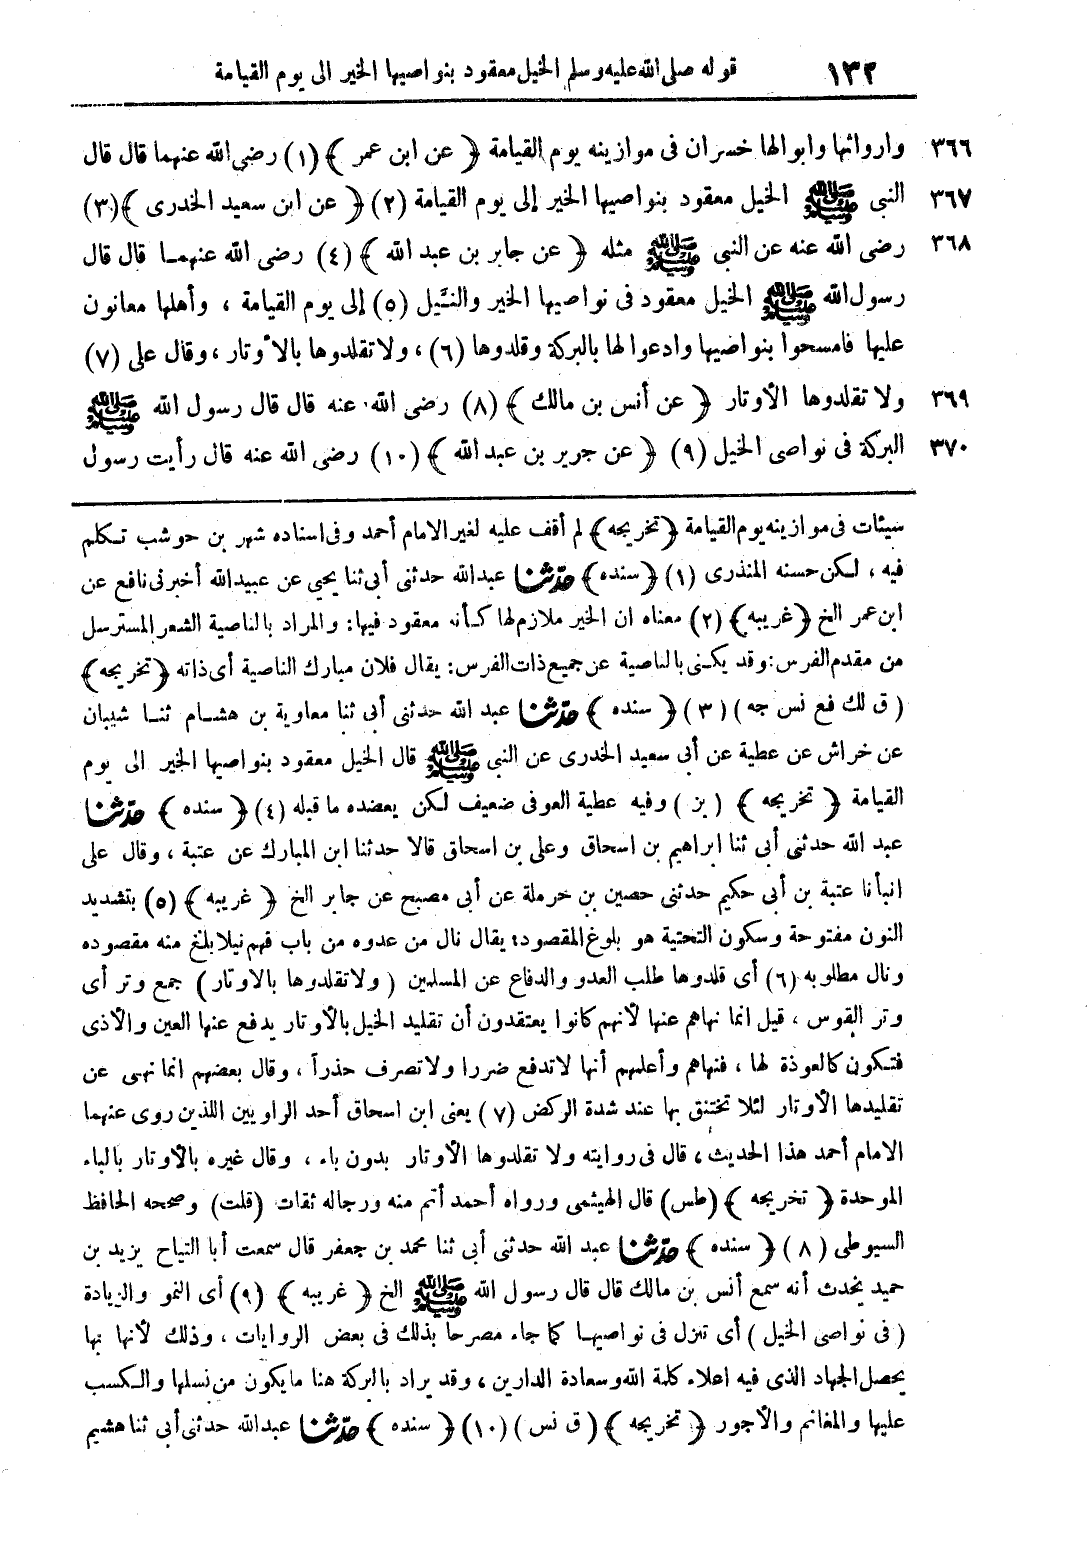 ١٣٢ قوله صلى الله عليه وسلم الخيل معقود بنواصيها الخير الى يوم القيامة
٣٦٦ وارواثها وابوالها خسران فى موازينه يوم القيامة ﴿ عن ابن عمر ﴾ (١) رضى الله عنهما قال قال
٣٦٧ النبى ﷺ الخيل معقود بنواصيها الخير إلى يوم القيامة (٢) ﴿ عن ابى سعيد الخدرى ﴾ (٣)
٣٦٨ رضى الله عنه عن النبى ﷺ مثله ﴿ عن جابر بن عبد الله ﴾ (٤) رضى الله عنهما قال قال
رسول الله ﷺ الخيل معقود فى نواصيها الخير والنَّيل (٥) إلى يوم القيامة ، وأهلها معانون
عليها فامسحوا بنواصيها وادعوا لها بالبركة وقلدوها (٦) ، ولا تقلدوها بالأوتار ، وقال على (٧)
٣٦٩ ولا تقلدوها الأوتار ﴿ عن أنس بن مالك ﴾ (٨) رضى الله عنه قال قال رسول الله ﷺ
٣٧٠ البركة فى نواصى الخيل (٩) ﴿ عن جرير بن عبد الله ﴾ (١٠) رضى الله عنه قال رأيت رسول
سيئات فى موازينه يوم القيامة ﴿ تخريجه ﴾ لم أقف عليه لغير الامام أحمد وفى اسناده شهر بن حوشب تكلم
فيه ، لكن حسنه المنذرى (١) ﴿ سنده ﴾ حدّثنا عبد الله حدثنى أبى ثنا يحيى عن عبيد الله أخبرنى نافع عن
ابن عمر الخ ﴿ غريبه ﴾ (٢) معناه ان الخير ملازم لها كأنه معقود فيها : والمراد بالناصية الشعر المسترسل
من مقدم الفرس : وقد يكنى بالناصية عن جميع ذات الفرس : يقال فلان مبارك الناصية أى ذاته ﴿ تخريجه ﴾
( ق لك فع نس جه ) (٣) ﴿ سنده ﴾ حدّثنا عبد الله حدثنى أبى ثنا معاوية بن هشام ثنا شيبان
عن خراش عن عطية عن أبى سعيد الخدرى عن النبى ﷺ قال الخيل معقود بنواصيها الخير الى يوم
القيامة ﴿ تخريجه ﴾ ( بز ) وفيه عطية العوفى ضعيف لكن يعضده ما قبله (٤) ﴿ سنده ﴾ حدّثنا
عبد الله حدثنى أبى ثنا ابراهيم بن اسحاق وعلى بن اسحاق قالا حدثنا ابن المبارك عن عتبة ، وقال على
انبأنا عتبة بن أبى حكيم حدثنى حصين بن حرملة عن أبى مصبح عن جابر الخ ﴿ غريبه ﴾ (٥) بتشديد
النون مفتوحة وسكون التحتية هو بلوغ المقصود ؛ يقال نال من عدوه من باب فهم نيلا بلغ منه مقصوده
ونال مطلوبه (٦) أى قلدوها طلب العدو والدفاع عن المسلمين ( ولا تقلدوها بالاوتار ) جمع وتر أى
وتر القوس ، قيل انما نهاهم عنها لأنهم كانوا يعتقدون أن تقليد الخيل بالأوتار يدفع عنها العين والأذى
فتكون كالعوذة لها ، فنهاهم وأعلمهم أنها لا تدفع ضررا ولا تصرف حذراً ، وقال بعضهم انما نهى عن
تقليدها الأوتار لئلا تختنق بها عند شدة الركض (٧) يعنى ابن اسحاق أحد الراويين اللذين روى عنهما
الامام أحمد هذا الحديث ، قال فى روايته ولا تقلدوها الأوتار بدون باء ، وقال غيره بالأوتار بالباء
الموحدة ﴿ تخريجه ﴾ (طس) قال الهيثمى ورواه أحمد أتم منه ورجاله ثقات (قلت) وصححه الحافظ
السيوطى (٨) ﴿ سنده ﴾ حدّثنا عبد الله حدثنى أبى ثنا محمد بن جعفر قال سمعت أبا التياح يزيد بن
حميد يحدث أنه سمع أنس بن مالك قال قال رسول الله ﷺ الخ ﴿ غريبه ﴾ (٩) أى النمو والزيادة
( فى نواصى الخيل ) أى تنزل فى نواصيها كما جاء مصرحا بذلك فى بعض الروايات ، وذلك لأنها بها
يحصل الجهاد الذى فيه اعلاء كلمة الله وسعادة الدارين ، وقد يراد بالبركة هنا ما يكون من نسلها والكسب
عليها والمغانم والأجور ﴿ تخريجه ﴾ ( ق نس ) (١٠) ﴿ سنده ﴾ حدّثنا عبد الله حدثنى أبى ثنا هشيم